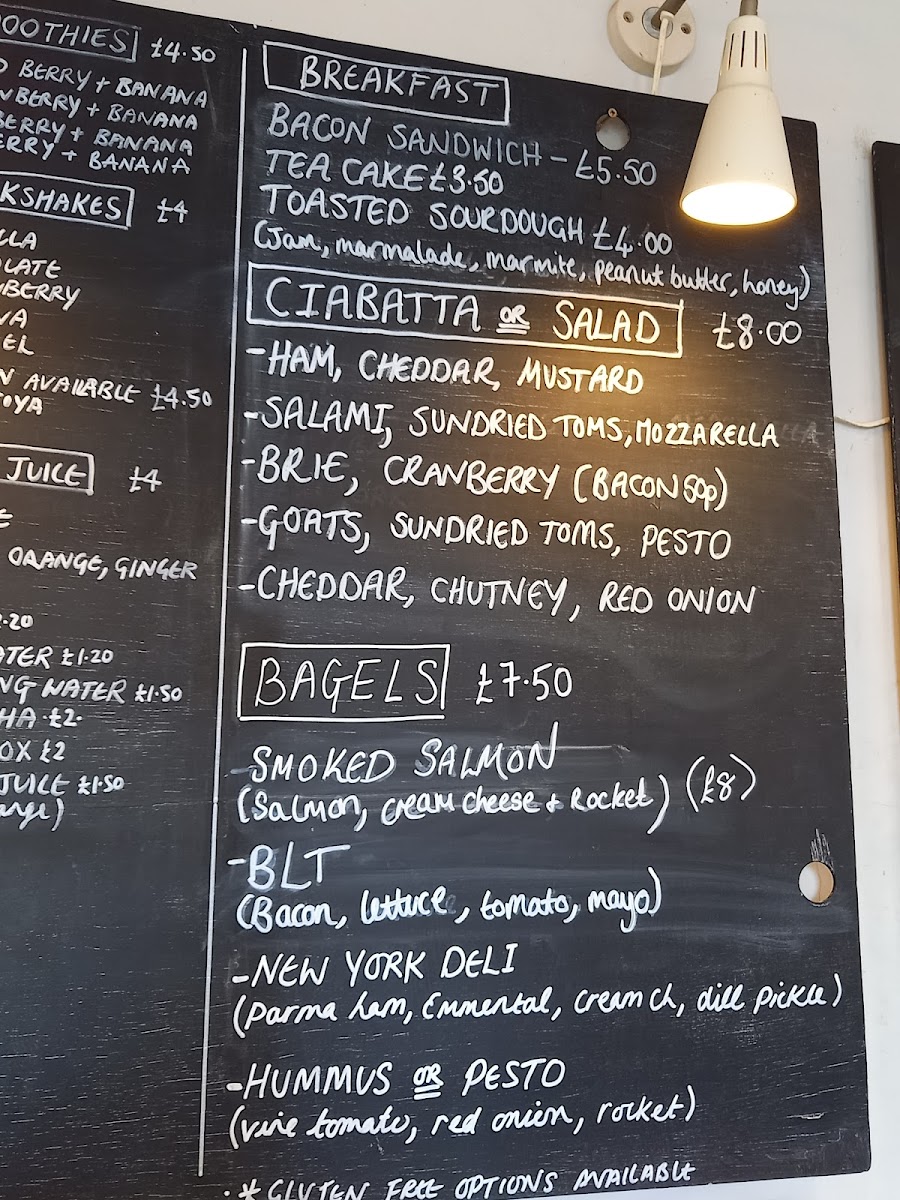 OOTHIES £4.50
BERRY + BANANA
BERRY + BANANA
BERRY + BANANA
ERRY + BANANA
KSHAKES £4
LLA
OLATE
BERRY
VA
EL
N AVAILABLE £4.50
OYA
JUICE £4
E
ORANGE, GINGER
.20
ATER £1.20
NG WATER £1.50
HA £2.
OX £2
JUICE £1.50
ange)
BREAKFAST
BACON SANDWICH - £5.50
TEA CAKE £3.50
TOASTED SOURDOUGH £4.00
(Jam, marmalade, marmite, peanut butter, honey)
CIABATTA OR SALAD £8.00
-HAM, CHEDDAR, MUSTARD
-SALAMI, SUNDRIED TOMS, MOZZARELLA
-BRIE, CRANBERRY (BACON 50p)
-GOATS, SUNDRIED TOMS, PESTO
-CHEDDAR, CHUTNEY, RED ONION
BAGELS £7.50
-SMOKED SALMON
(Salmon, cream cheese + Rocket) (£8)
-BLT
(Bacon, lettuce, tomato, mayo)
-NEW YORK DELI
(Parma ham, Emmental, cream ch, dill pickle)
-HUMMUS OR PESTO
(vine tomato, red onion, rocket)
* GLUTEN FREE OPTIONS AVAILABLE